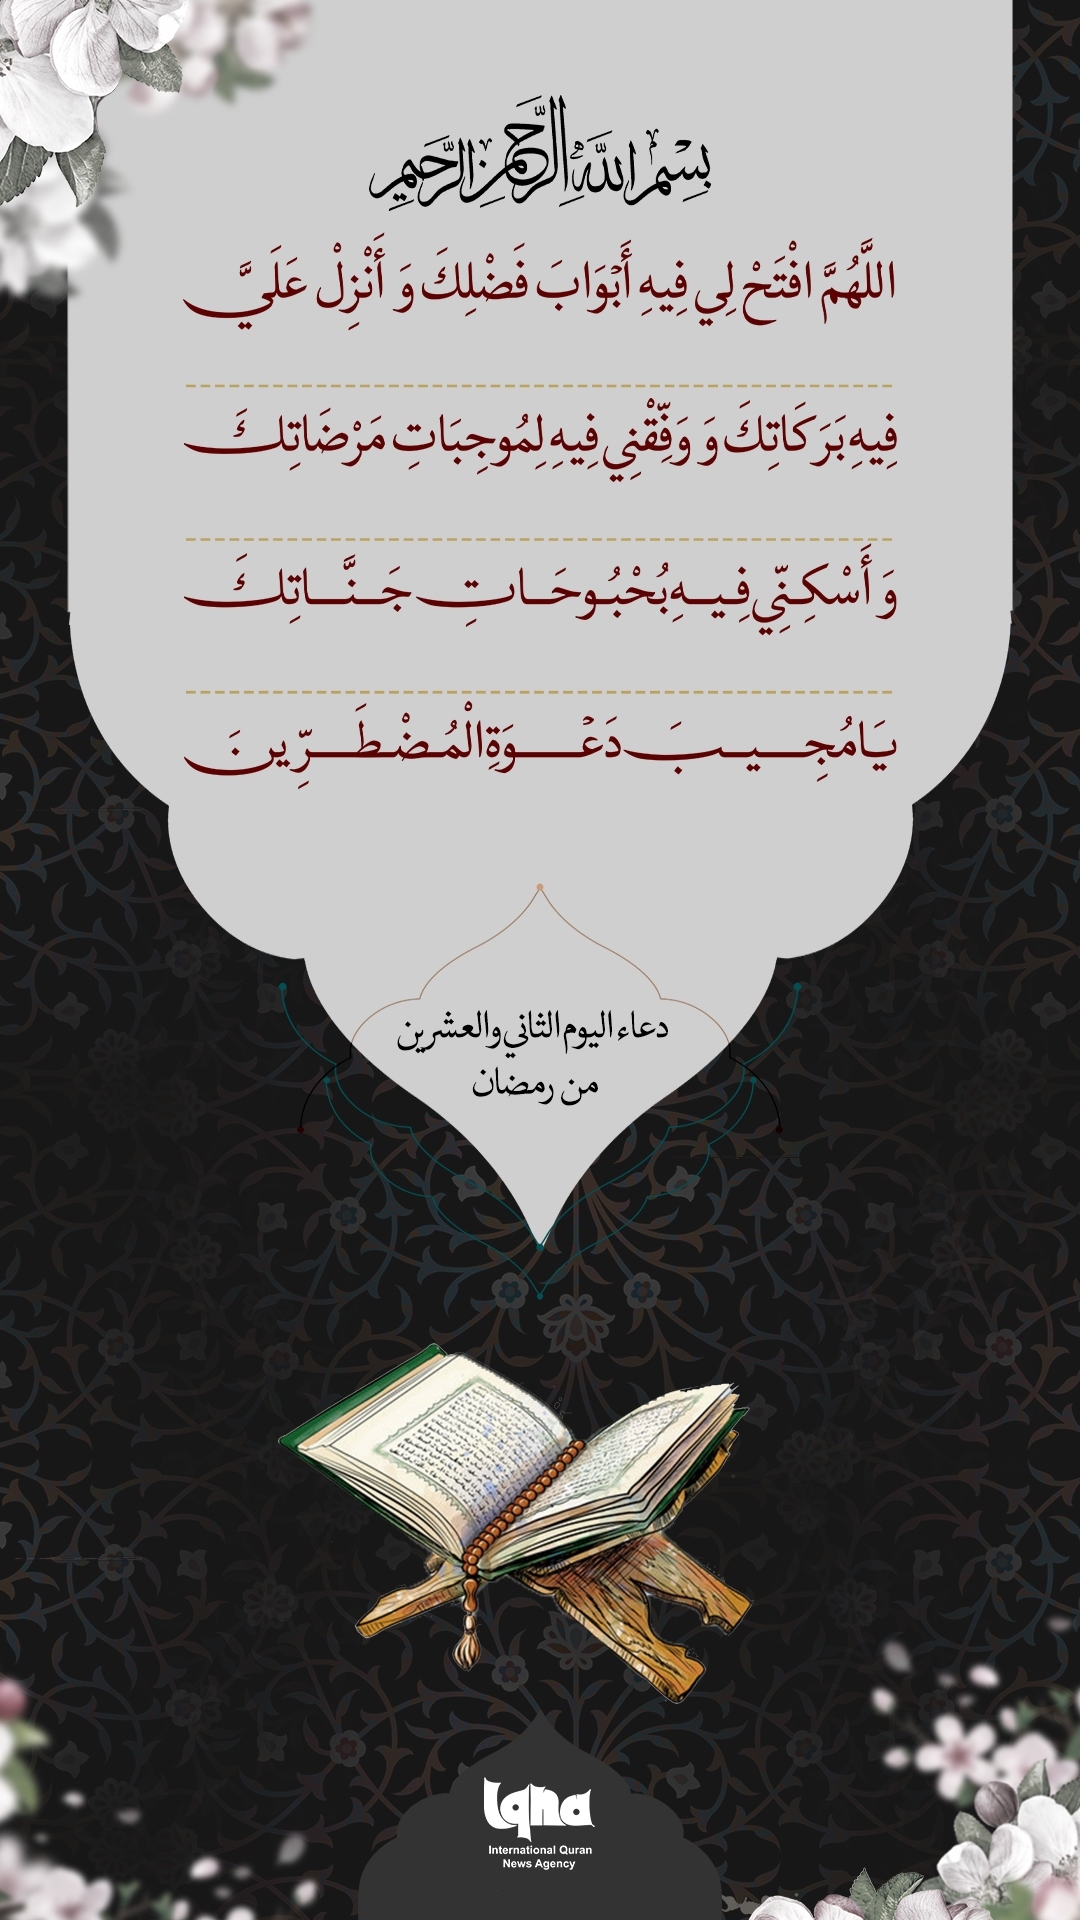 بِسْمِ اللَّهِ الرَّحْمَنِ الرَّحِيمِ
اللَّهُمَّ افْتَحْ لِي فِيهِ أَبْوَابَ فَضْلِكَ وَ أَنْزِلْ عَلَيَّ
فِيهِ بَرَكَاتِكَ وَ وَفِّقْنِي فِيهِ لِمُوجِبَاتِ مَرْضَاتِكَ
وَ أَسْكِنِّي فِيهِ بُحْبُوحَاتِ جَنَّاتِكَ
يَا مُجِيبَ دَعْوَةِ الْمُضْطَرِّينَ
دعاء اليوم الثاني والعشرين
من رمضان
Iqna
International Quran
News Agency